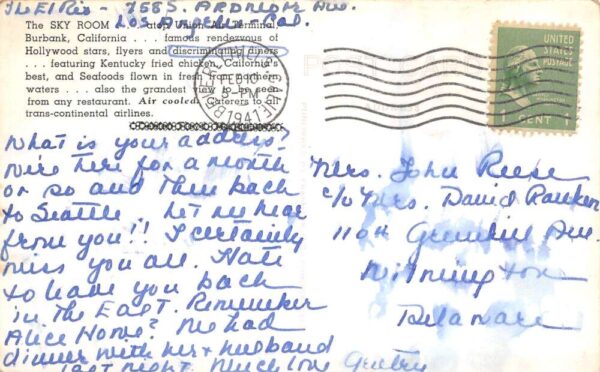 The El Rio - 758 S. Ardmore Ave.
Los Angeles - Cal.
The SKY ROOM atop Union Air Terminal,
Burbank, California . . . famous rendezvous of
Hollywood stars, flyers and discriminating diners
. . . featuring Kentucky fried chicken, California's
best, and Seafoods flown in fresh from northern
waters . . . also the grandest view to be seen
from any restaurant. Air cooled. Caterers to all
trans-continental airlines.
What is your address?
We're here for a month
or so and then back
to Seattle. Let me hear
from you!! I certainly
miss you all. Hate
to leave you back
in the East. Remember
Alice Howe? We had
dinner with her & husband
last night. Much love Gentry
FEB 10
5 - PM
1941
UNITED
STATES
POSTAGE
1 CENT 1
Mrs. John Reese
c/o Mrs. David Rankin
110 Greenhill Ave.
Wilmington
Delaware